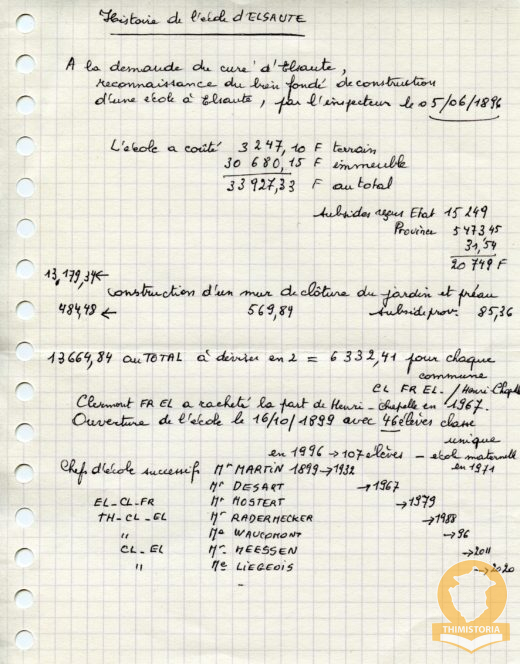 Histoire de l'école d'ELSAUTE
A la demande du curé d'Elsaute,
reconnaissance du bien fondé de construction
d'une école à Elsaute, par l'inspecteur le 05/06/1896
L'école a coûté 3 247,10 F terrain
30 680,15 F immeuble
33 927,33 F au total
subsides reçus Etat 15 249
Province 5 473 45
31,54
20 749 F
13,179,34 ←
construction d'un mur de clôture du jardin et préau
484,48 ← 569,84 subside prov. 85,36
13 664,84 au TOTAL à diviser en 2 = 6 332,41 pour chaque
commune
CL FR EL / Henri-Chapelle
Clermont FR EL a racheté la part de Henri-Chapelle en 1967.
Ouverture de l'école le 16/10/1899 avec 46 élèves classe
unique
en 1996 → 107 élèves - ecol maternelle
en 1971
Chefs d'école successifs Mr MARTIN 1899 → 1932
Mr DESART → 1967
EL-CL-FR Mr MOSTERT → 1979
TH-CL-EL Mr RADERMECKER → 1988
" Me WAUCOMONT → 96
CL-EL Mr MEESSEN → 2011
" Me LIEGEOIS → 2020
THIMISTORIA